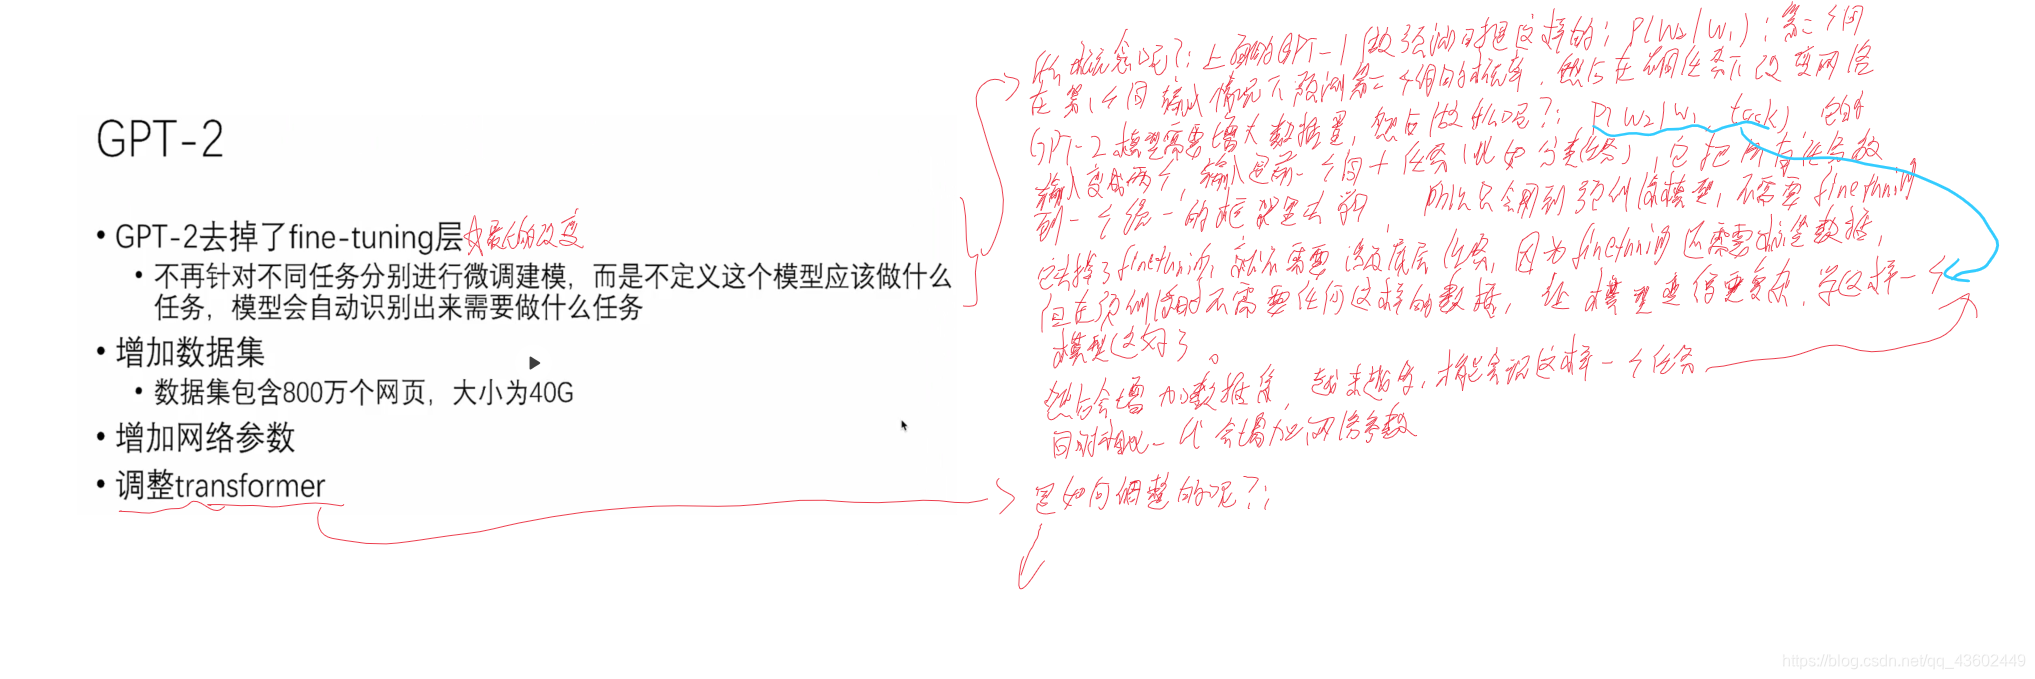 GPT-2
• GPT-2去掉了fine-tuning层 最大的改变
• 不再针对不同任务分别进行微调建模，而是不定义这个模型应该做什么
任务，模型会自动识别出来需要做什么任务
• 增加数据集
• 数据集包含800万个网页，大小为40G
• 增加网络参数
• 调整transformer
什么概念呢?: 上面的GPT-1做预测是这样的: P(w2|w1): 第二个词
在第1个词输入情况下预测第二个词的概率，然后在不同任务下改变网络
GPT-2模型需要增大数据量，然后做什么呢?: P(w2|w1, task)
输入变成两个，输入是前一个词+任务(比如分类任务)，它把所有任务放
到一个统一的框架里去学，所以只会用到预训练模型，不需要finetuning
它去掉了finetuning，就不需要 任务，因为finetuning还需要标签数据，
但在预训练时不需要任何这样的数据，让模型变得更复杂，学这样一个
模型就好了。
然后会增加数据集，越来越多，才能会识这样一个任务
同时 一代会增加网络参数
是如何调整的呢?:
https://blog.csdn.net/qq_43602449